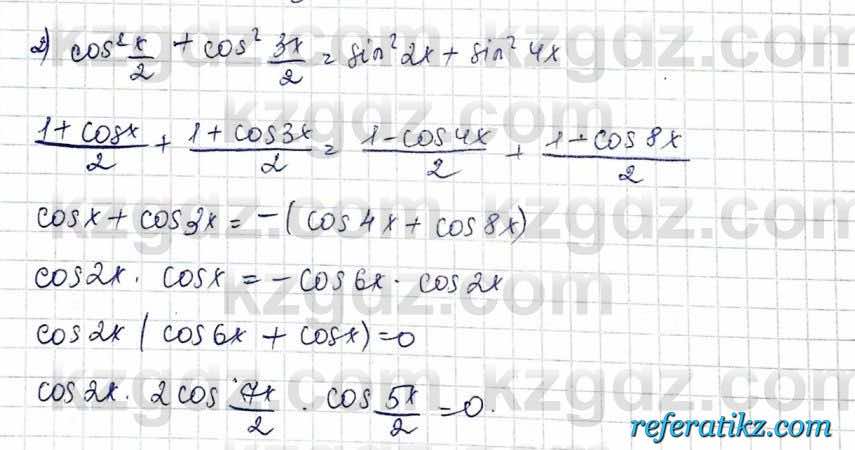 2) cos² x/2 + cos² 3x/2 = sin² 2x + sin² 4x
(1 + cosx)/2 + (1 + cos3x)/2 = (1 - cos4x)/2 + (1 - cos8x)/2
cosx + cos3x = -(cos4x + cos8x)
cos2x · cosx = -cos6x · cos2x
cos2x (cos6x + cosx) = 0
cos2x · 2cos 7x/2 · cos 5x/2 = 0.
kzgdz.com
referatikz.com